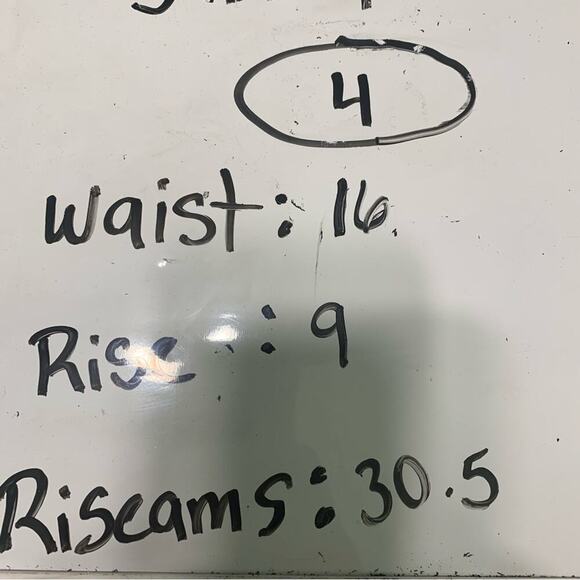 4
Waist: 16
Rise: 9
Riseams: 30.5